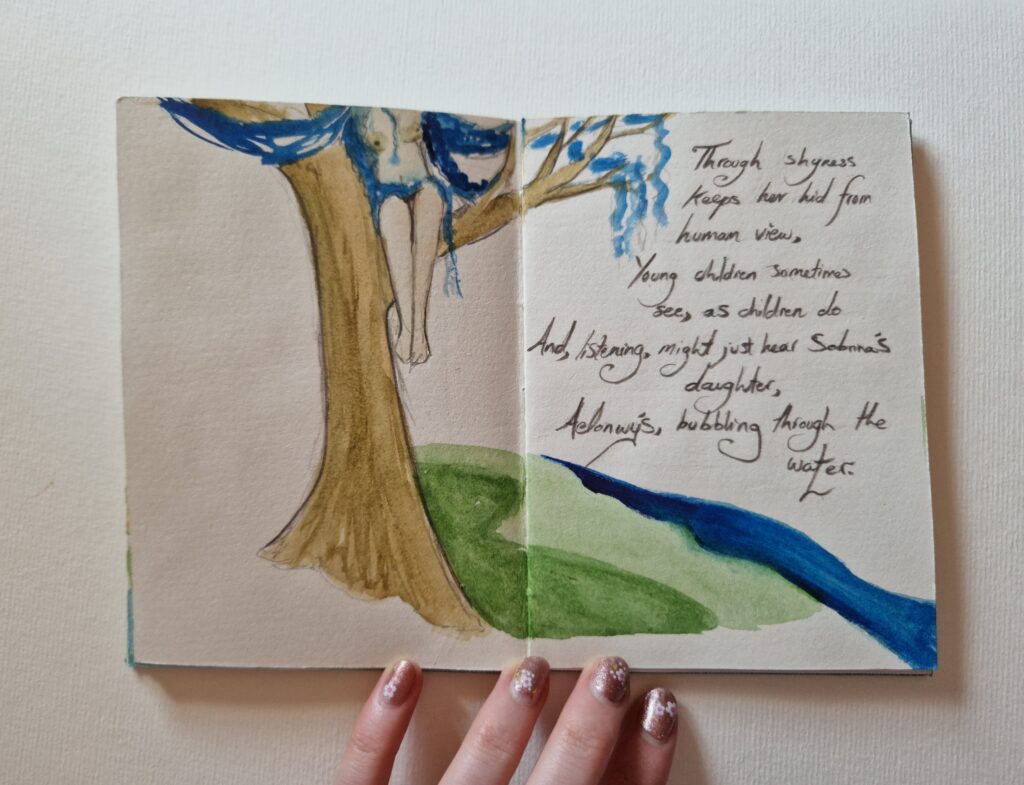 Through shyness
keeps her hid from
human view,
Young children sometimes
see, as children do
And, listening, might just hear Sabrina's
daughter,
Aelonwy's, bubbling through the
water.